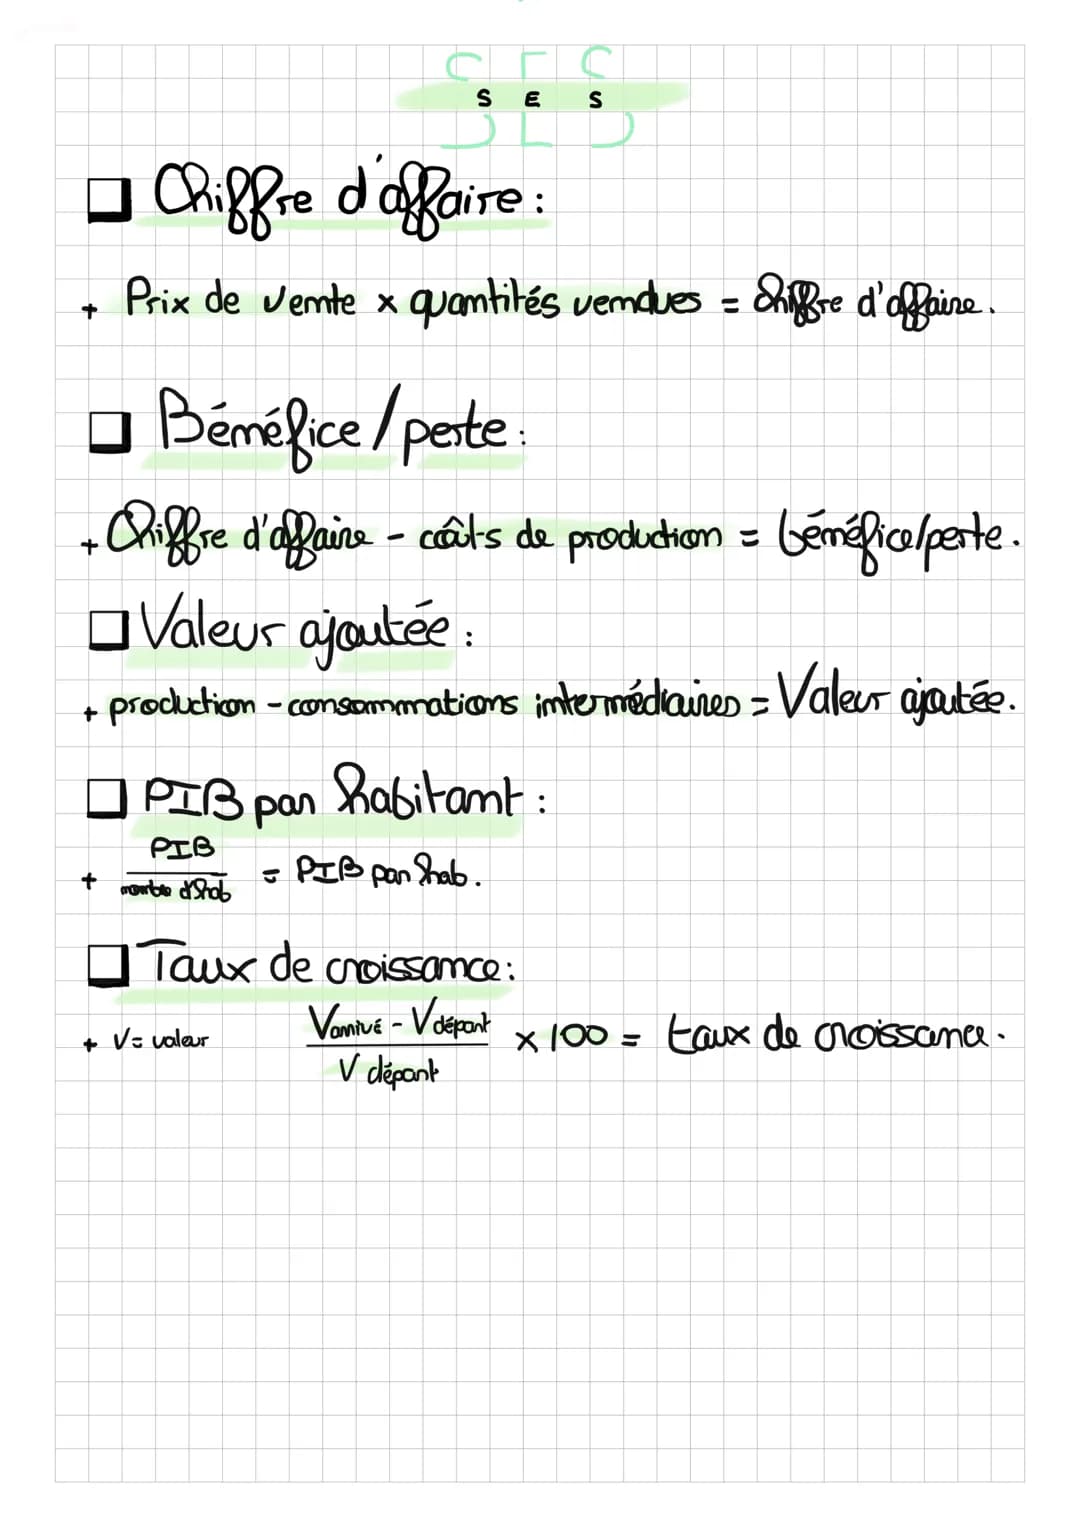 S E S
Chiffre d'affaire :
+ Prix de vente x quantités vendues = Chiffre d'affaire.
Bénéfice / perte :
+ Chiffre d'affaire - coûts de production = bénéfice/perte.
Valeur ajoutée :
+ production - consommations intermédiaires = Valeur ajoutée.
PIB par habitant :
+ PIB / nombre d'hab = PIB par hab.
Taux de croissance :
+ V = valeur (V arrivé - V départ) / V départ x 100 = taux de croissance.